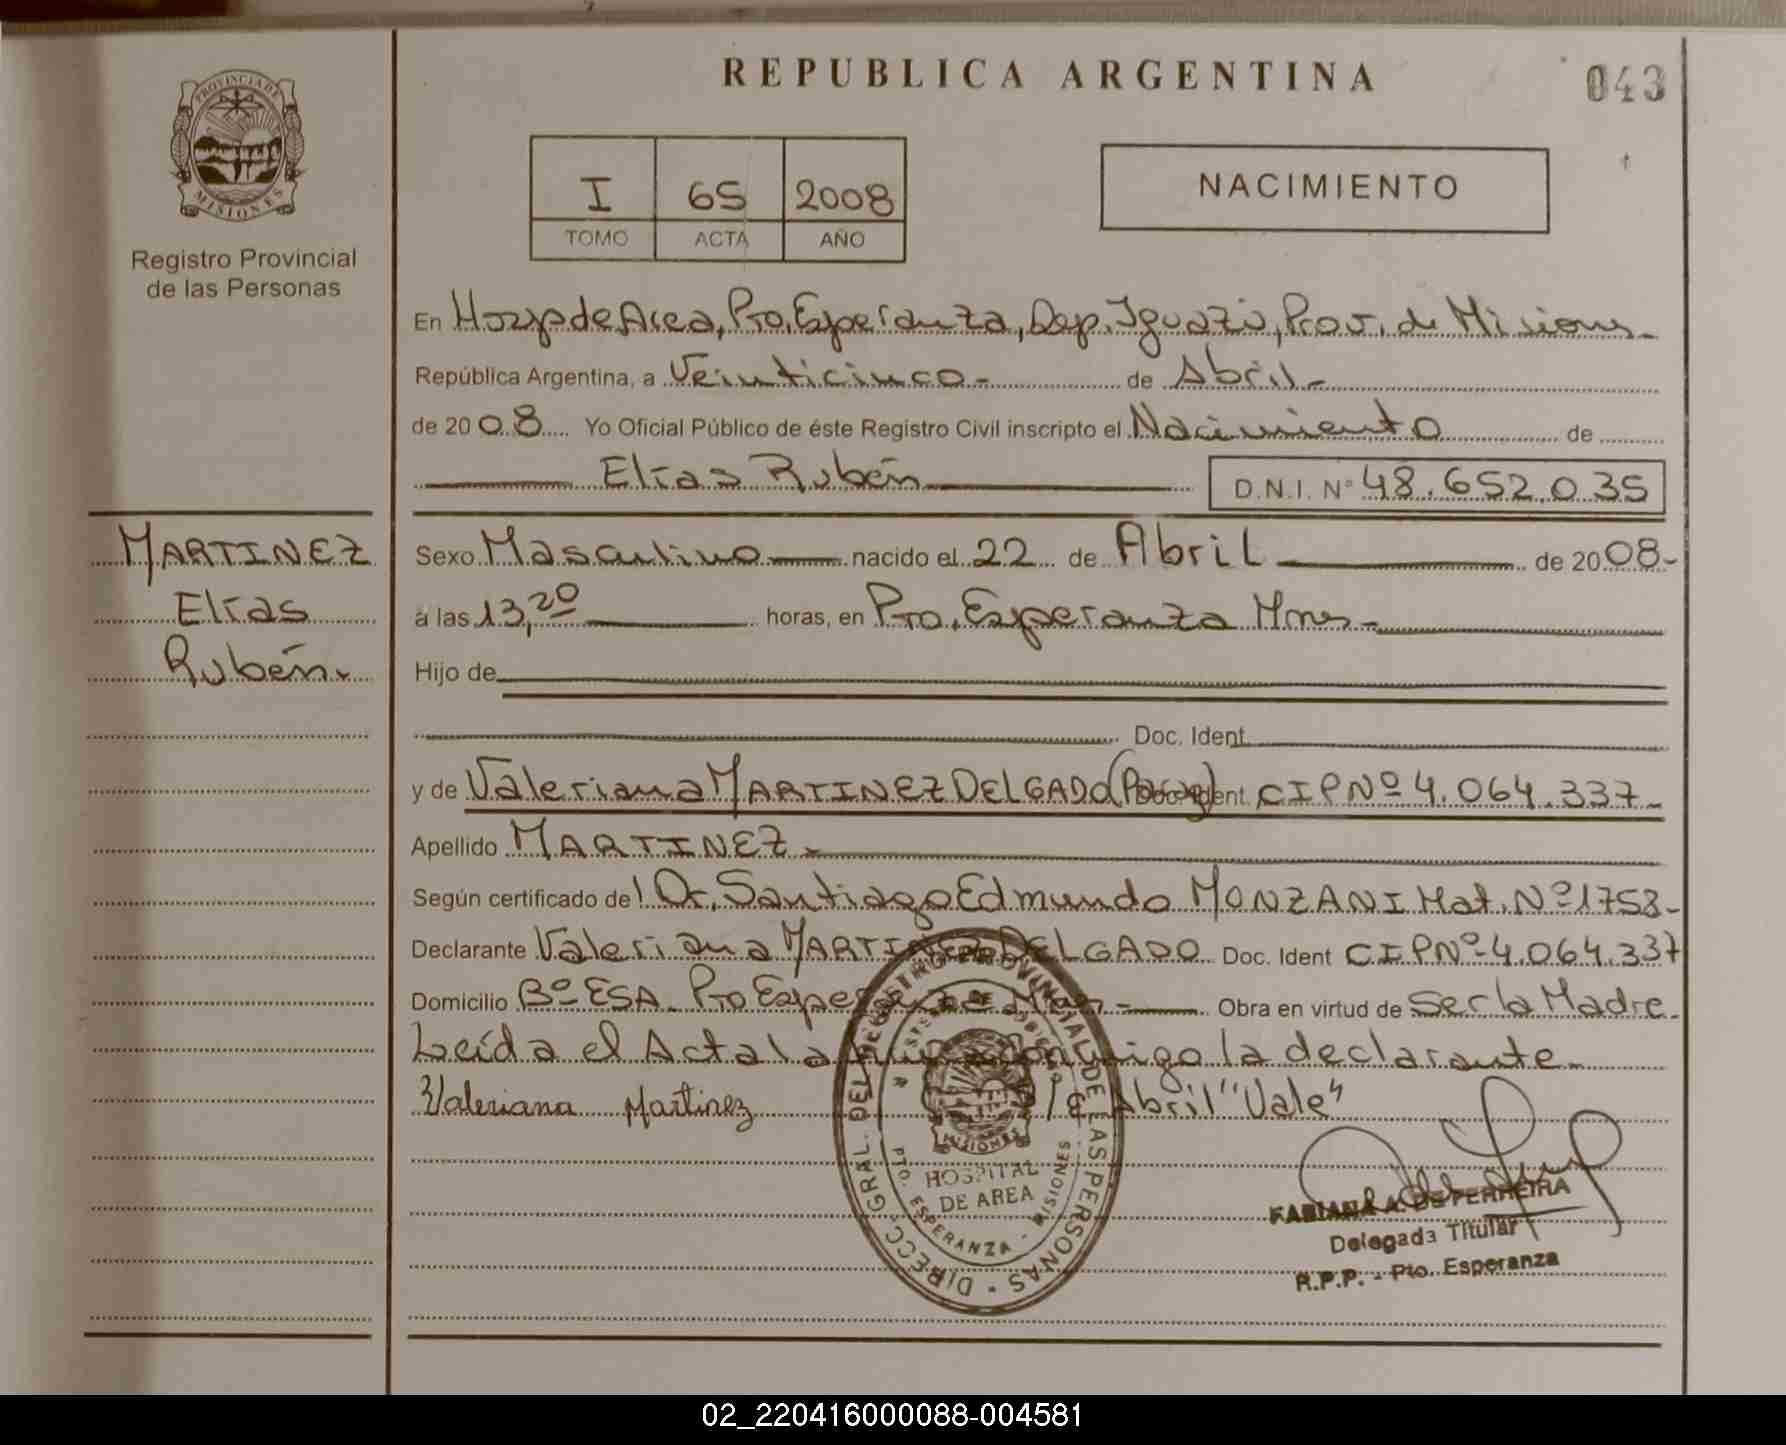 REPUBLICA ARGENTINA
043
PROVINCIA DE
MISIONES
Registro Provincial
de las Personas
I 65 2008
TOMO ACTA AÑO
NACIMIENTO
En Hosp de Area, Pto. Esperanza, Dep. Iguazú, Prov. de Misiones.-
República Argentina, a Veinticinco.- de Abril.-
de 2008 Yo Oficial Público de éste Registro Civil inscripto el Nacimiento de
Elías Rubén D.N.I. Nº 48.652.035
MARTINEZ
Elías
Rubén.
Sexo Masculino nacido el 22 de Abril de 2008-
a las 13,20 horas, en Pto. Esperanza Mnes.-
Hijo de
Doc. Ident.
y de Valeriana MARTINEZ DELGADO (Parag) Doc. Ident. CIPNº 4.064.337.-
Apellido MARTINEZ.-
Según certificado del Dr. Santiago Edmundo MONZANI Mat. Nº 1758-
Declarante Valeriana MARTINEZ DELGADO Doc. Ident CIPNº 4.064.337
Domicilio Bº ESA. Pto Esperanza Mnes.- Obra en virtud de Ser la Madre.
Leída el Acta la firma conmigo la declarante.-
Valeriana Martinez Abril "Vale"
DIRECC. GRAL. DEL REGISTRO PROVINCIAL DE LAS PERSONAS
MISIONES
HOSPITAL
DE AREA
PTO. ESPERANZA - MISIONES
FABIANA A. DE FERREIRA
Delegada Titular
R.P.P. - Pto. Esperanza
02_220416000088-004581